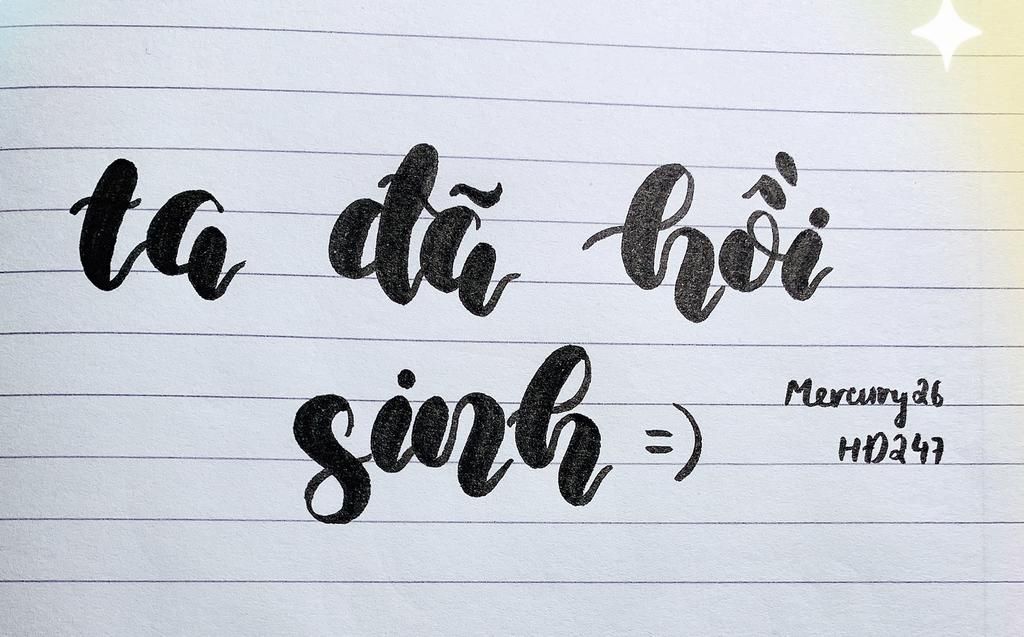 ta đã hồi
sinh =)
Mercury26
HD247